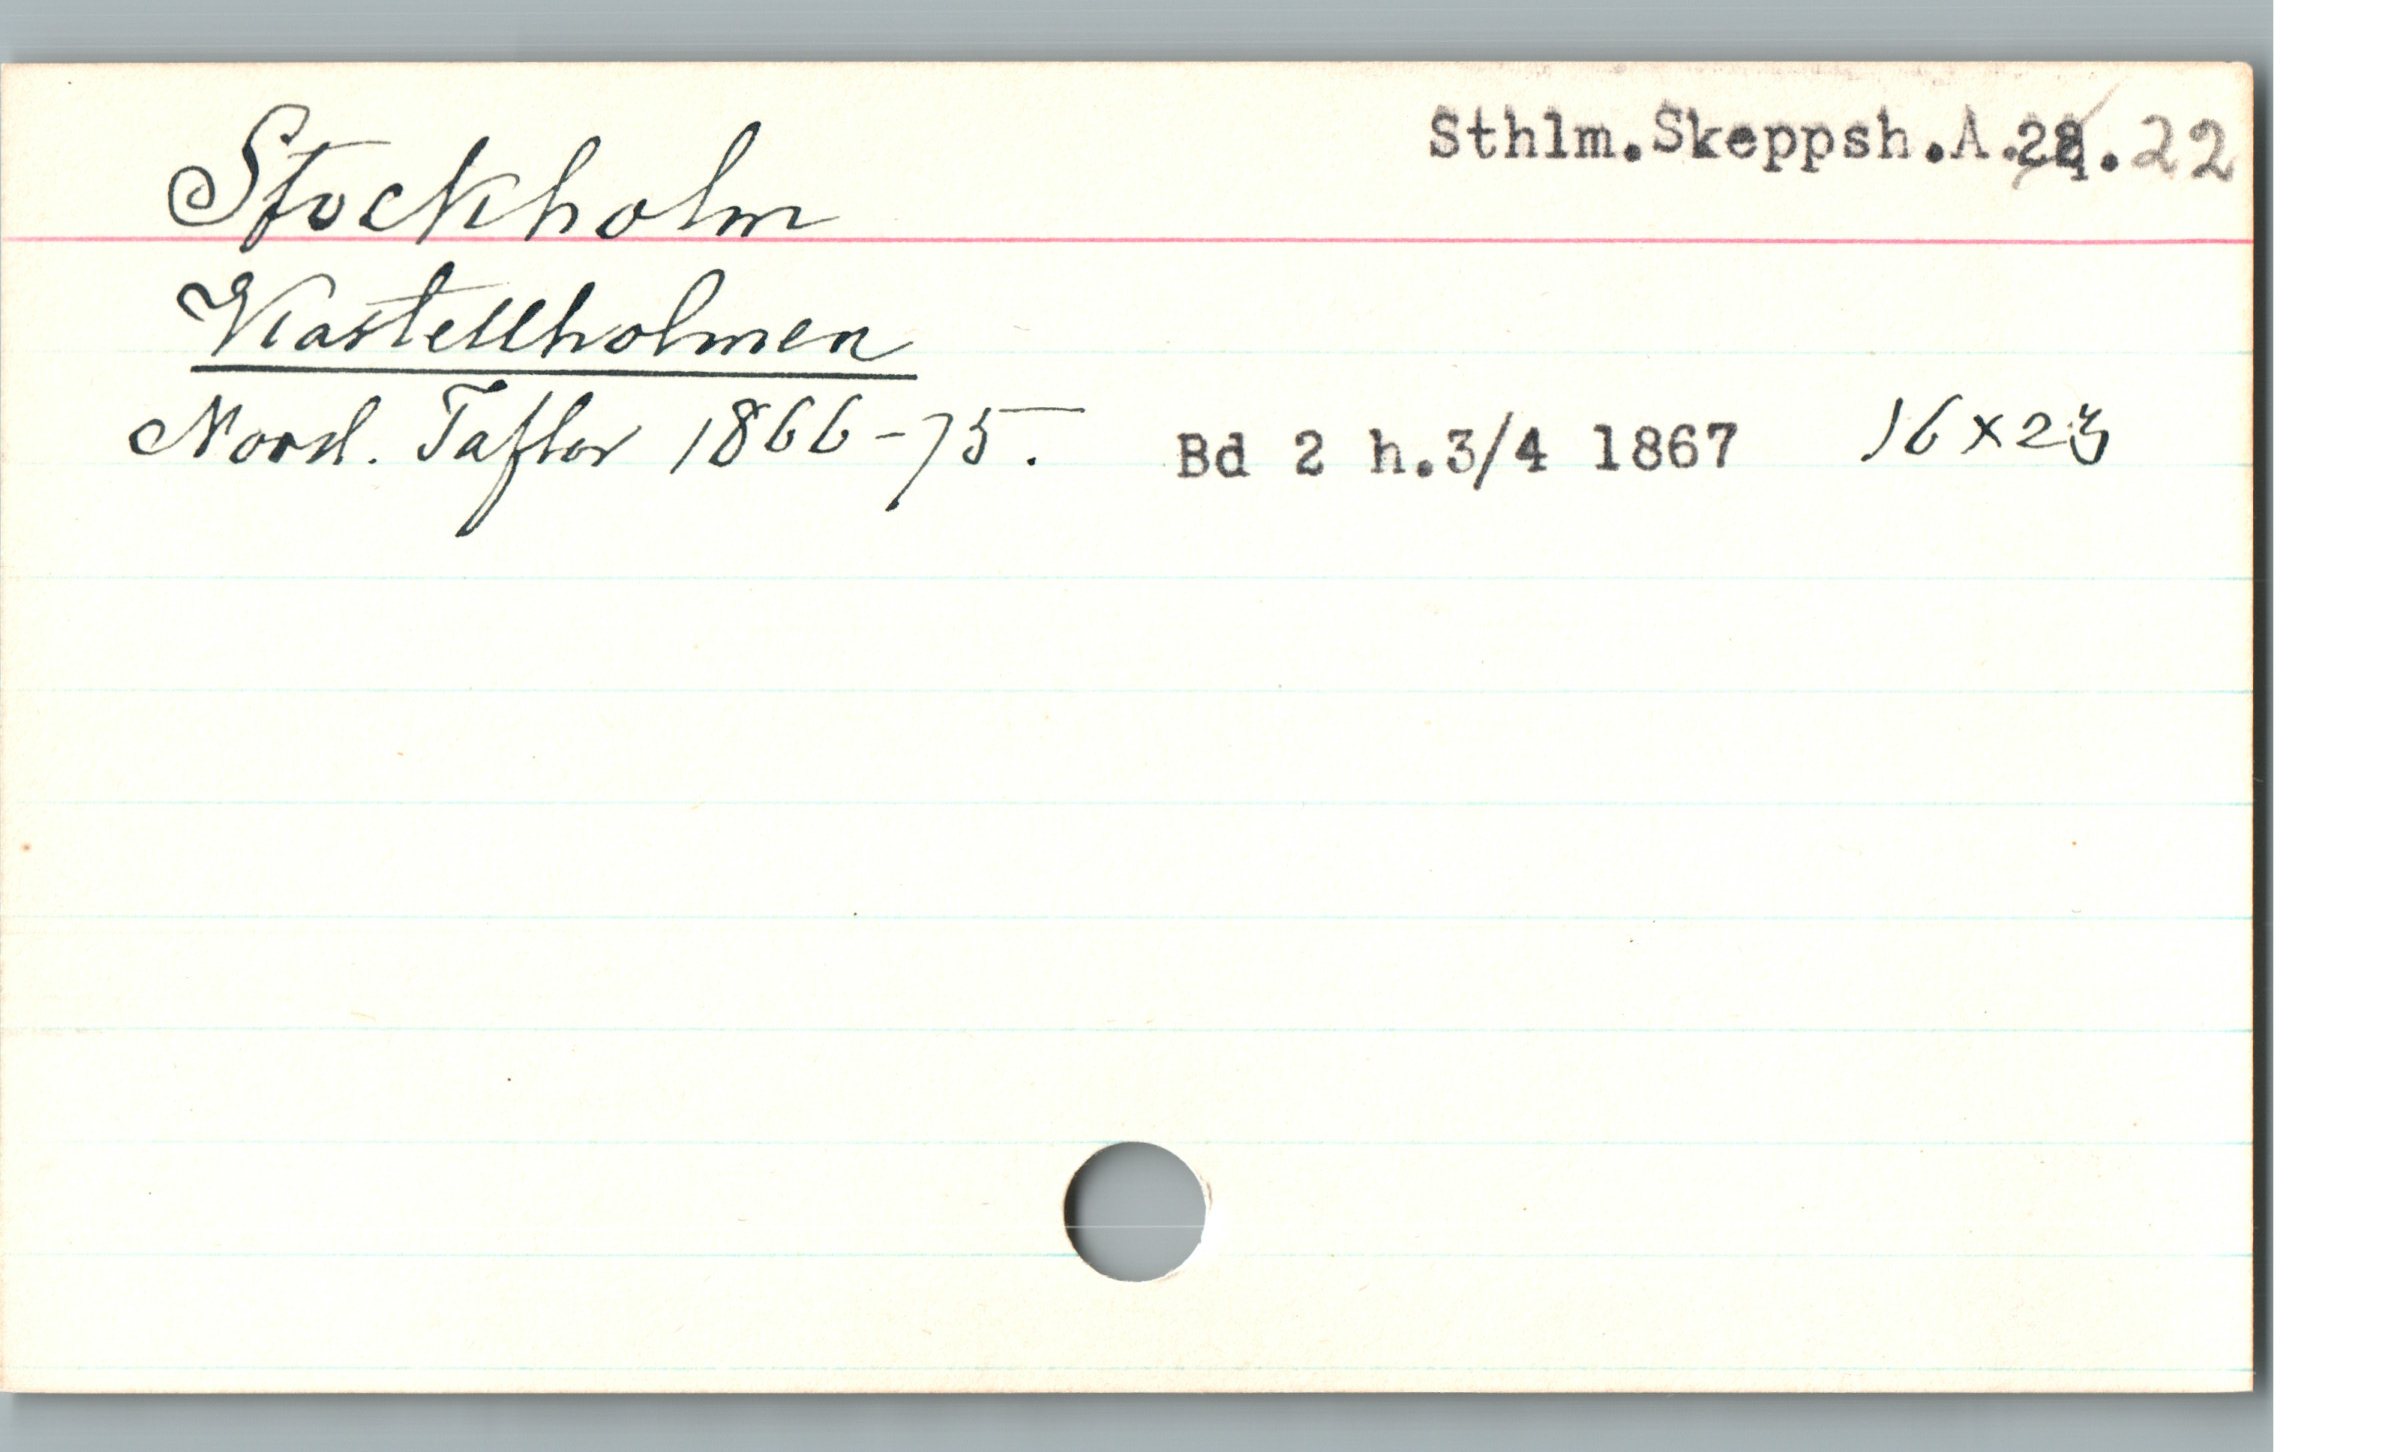 Stockholm
Sthlm.Skeppsh.A. . 22
Kastellholmen
Nord. Taflor 1866-75. Bd 2 h.3/4 1867 16x23